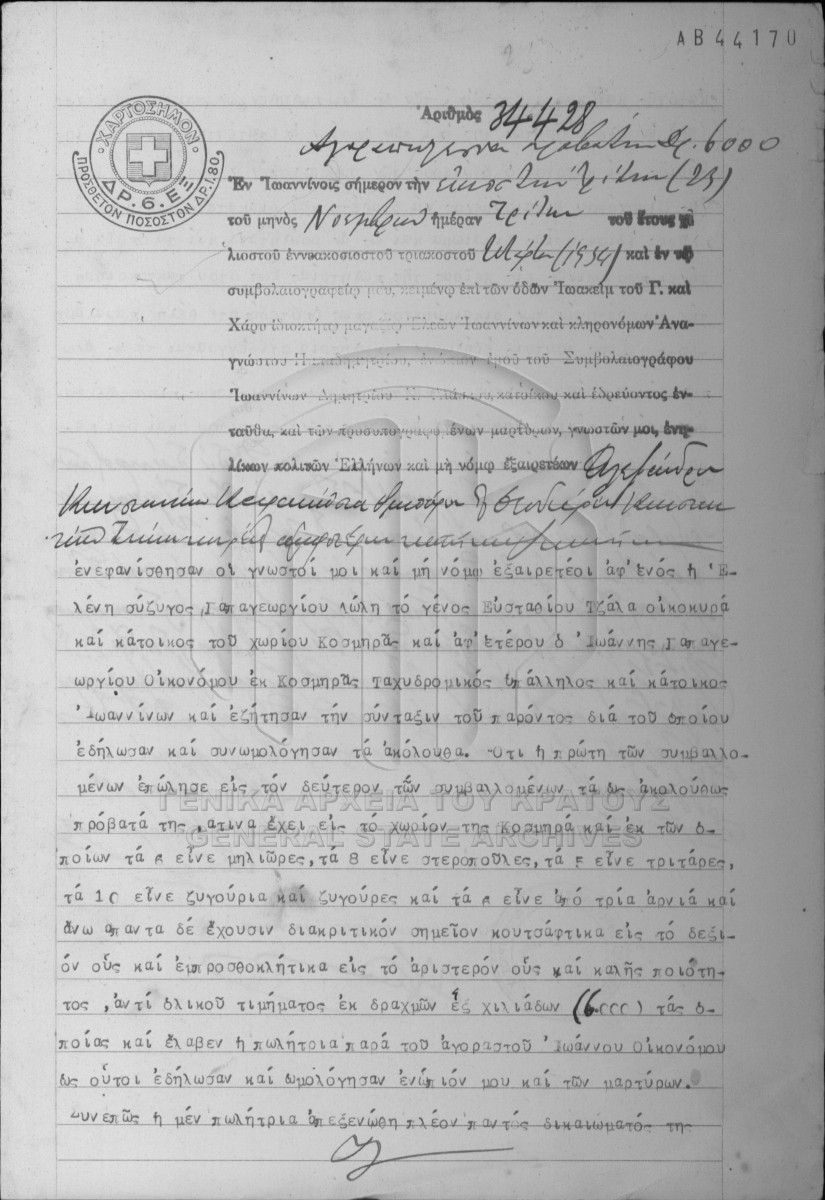 ΑΒ44170
ΧΑΡΤΟΣΗΜΟΝ
ΔΡ.6.ΕΞ
ΠΡΟΣΘΕΤΟΝ ΠΟΣΟΣΤΟΝ ΔΡ.1.80
Ἀριθμὸς 34428
Δρ. 6000
Ἐν Ἰωαννίνοις σήμερον τὴν εἰκοστὴν τρίτην (23)
τοῦ μηνὸς Νοεμβρίου ἡμέραν Τρίτην τοῦ ἔτους χι
λιοστοῦ ἐννεακοσιοστοῦ τριακοστοῦ (1934) καὶ ἐν τῷ
συμβολαιογραφείῳ μου, κειμένῳ ἐπὶ τῶν ὁδῶν Ἰωακεὶμ τοῦ Γ. καὶ
Χάρυ ἰδιοκτήτῳ μαγαζίῳ Ἐλεῶν Ἰωαννίνων καὶ κληρονόμων Ἀνα-
γνώστου ἐνώπιον ἐμοῦ τοῦ Συμβολαιογράφου
Ἰωαννίνων Δημητρίου κατοίκου καὶ ἑδρεύοντος ἐν-
ταῦθα, καὶ τῶν προσυπογραφομένων μαρτύρων, γνωστῶν μοι, ἐνη-
λίκων πολιτῶν Ἑλλήνων καὶ μὴ νόμῳ ἐξαιρετέων Ἀλεξάνδρου
ἐνεφανίσθησαν οἱ γνωστοί μοι καί μή νόμῳ ἐξαιρετέοι ἀφ'ἑνός ἡ Ἑ-
λένη σύζυγος Παπαγεωργίου Λώλη τό γένος Εὐσταθίου Τζάλα οἰκοκυρά
καί κάτοικος τοῦ χωρίου Κοσμηρᾶς καί ἀφ'ἑτέρου ὁ Ἰωάννης Παπαγε-
ωργίου Οἰκονόμου ἐκ Κοσμηρᾶς Ταχυδρομικός ὑπάλληλος καί κάτοικος
Ἰωαννίνων καί ἐζήτησαν τήν σύνταξιν τοῦ παρόντος διά τοῦ ὁποίου
ἐδήλωσαν καί συνωμολόγησαν τά ἀκόλουθα. Ὅτι ἡ πρώτη τῶν συμβαλλο-
μένων ἐπώλησε εἰς τόν δεύτερον τῶν συμβαλλομένων τά ὡς ἀκολούθως
πρόβατά της ,ἅτινα ἔχει εἰς τό χωρίον της Κοσμηρά καί ἐκ τῶν ὁ-
ποίων τά 6 εἶνε μηλιῶρες,τά 8 εἶνε στεροποῦλες,τα 5 εἶνε τριτάρες,
τά 10 εἶνε ζυγούρια καί ζυγούρες καί τά 6 εἶνε ἀπό τρία ἀρνιά καί
ἄνω ἅπαντα δέ ἔχουσιν διακριτικόν σημεῖον κουτσάφτικα εἰς τό δεξι-
όν οὖς καί ἐμπροσθοκλήτικα εἰς τό ἀριστερόν οὖς καί καλῆς ποιότη-
τος ,ἀντί ὁλικοῦ τιμήματος ἐκ δραχμῶν ἕξ χιλιάδων (6.000) τάς ὁ-
ποίας καί ἔλαβεν ἡ πωλήτρια παρά τοῦ ἀγοραστοῦ Ἰωάννου Οἰκονόμου
ὡς οὗτοι ἐδήλωσαν καί ὡμολόγησαν ἐνώπιόν μου καί τῶν μαρτύρων.
Συνεπῶς ἡ μέν πωλήτρια ἀπεξενώθη πλέον παντός δικαιώματός της
ΓΕΝΙΚΑ ΑΡΧΕΙΑ ΤΟΥ ΚΡΑΤΟΥΣ
GENERAL STATE ARCHIVES